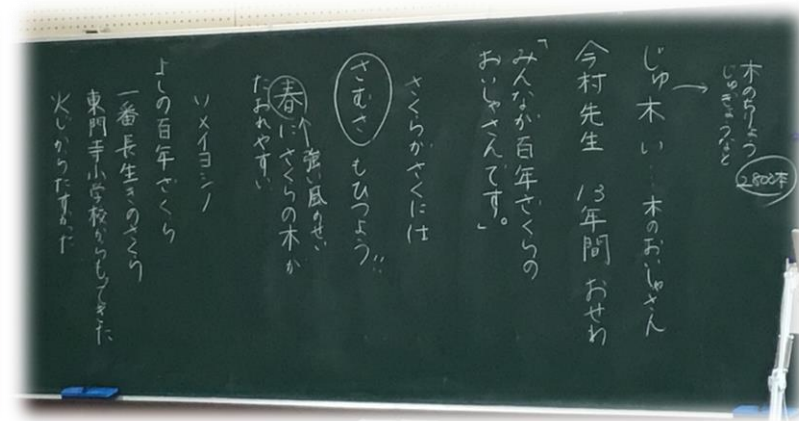 木のちりょう
じゅぎょうなど
2800本
じゅ木い… 木のおいしゃさん
今村先生 13年間 おせわ
「みんなが百年ざくらの
おいしゃさんです。」
さくらがさくには
さむさ もひつよう!!
春にさくらの木が
↑強い風のせい
たおれやすい
ソメイヨシノ
よしの百年ざくら
一番長生きのさくら
東門寺小学校からもってきた
火じからたすかった